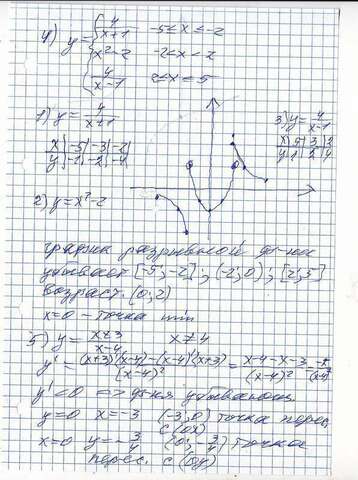 4) y = { 4/(x+1)   -5 ≤ x ≤ -2
x²-2   -2 < x < 2
4/(x-1)   2 ≤ x ≤ 5
1) y = 4/(x+1)
x | -5 | -3 | -2
y | -1 | -2 | -4
3) y = 4/(x-1)
x | 5 | 3 | 2
y | 1 | 2 | 4
2) y = x²-2
график разрывной ф-ии
убывает [-5; -2]; (-2; 0); [2; 5]
возраст. (0; 2)
x=0 – точка min
5) y = (x+3)/(x-4)   x ≠ 4
y' = ((x+3)'(x-4)-(x-4)'(x+3))/(x-4)² = (x-4-x-3)/(x-4)² = -7/(x-4)²
y' < 0 => ф-ия убывающ.
y=0   x=-3   (-3; 0) точка перес.
с (OX)
x=0   y=-3/4   (0; -3/4) точка
перес. с (OY)